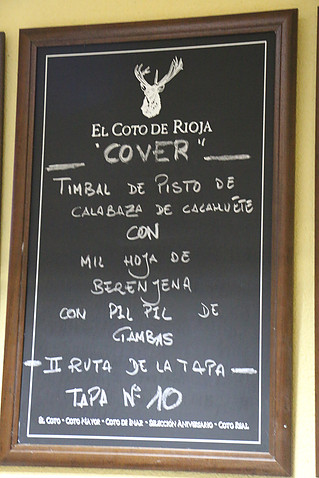 EL COTO DE RIOJA
"COVER"
TIMBAL DE PISTO DE
CALABAZA DE CACAHUÉTE
CON
MIL HOJA DE
BERENJENA
CON PIL PIL DE
GAMBAS
— II RUTA DE LA TAPA —
TAPA Nº 10
EL COTO - COTO MAYOR - COTO DE IMAZ - SELECCIÓN ANIVERSARIO - COTO REAL